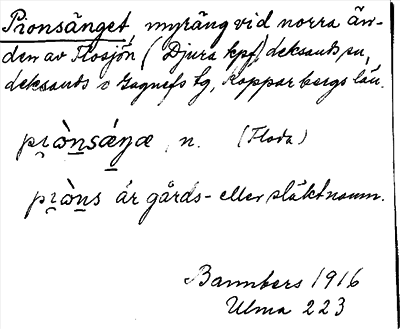 Pionsänget, myräng vid norra än-
den av Flosjön (Djura kpf) deksands su,
deksands o Gagnefs tg, Kopparbergs län.
n. (Floda)
är gårds- eller släktnamn.
Bannbers 1916
Ulma 223